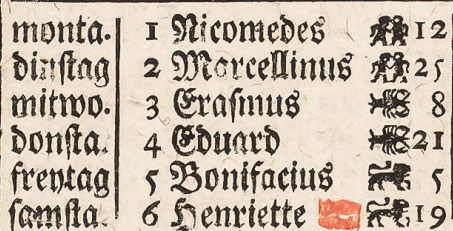 monta. 1 Nicomedes 12
dinstag 2 Marcellinus 25
mitwo. 3 Eraſmus 8
donſta. 4 Eduard 21
freytag 5 Bonifacius 5
ſamſta. 6 Henriette 19